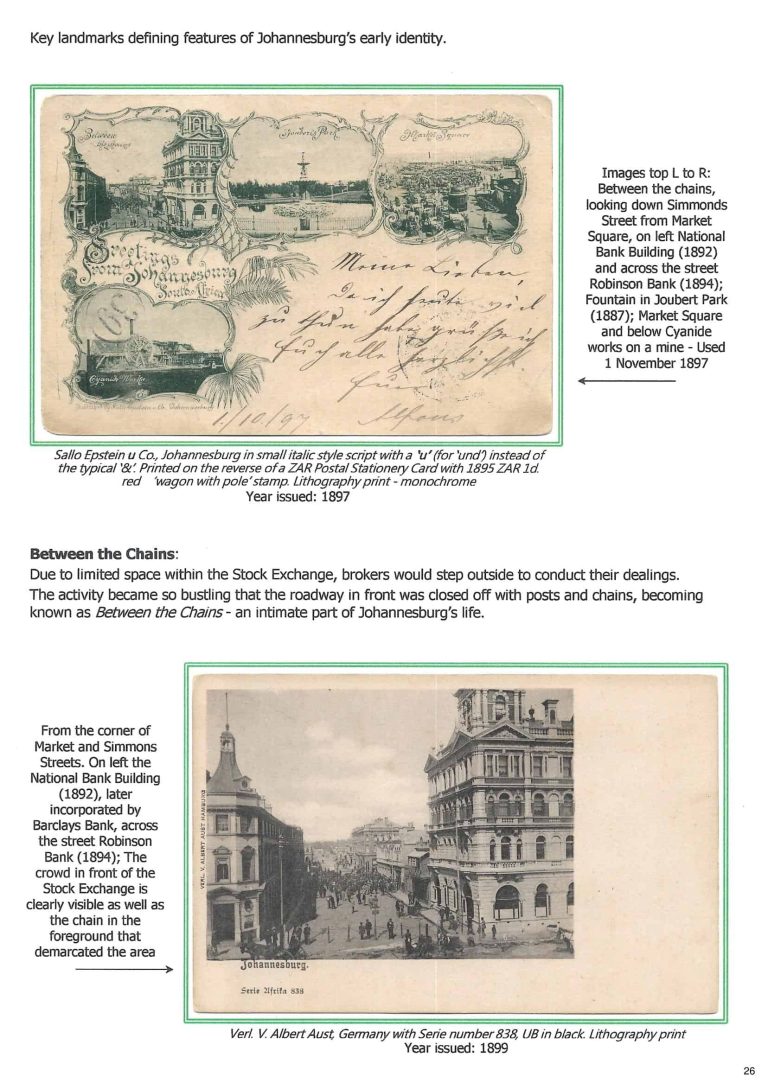 Key landmarks defining features of Johannesburg's early identity.
Between
the Chains
Jouberts Park
Market Square
Greetings
from Johannesburg
South Africa
Meine Lieben,
Da ich heute viel
zu thun habe grüße ich
Euch alle herzlichst.
Euer
Alfons
Cyanide Works
1/10/97
Images top L to R:
Between the chains,
looking down Simmonds
Street from Market
Square, on left National
Bank Building (1892)
and across the street
Robinson Bank (1894);
Fountain in Joubert Park
(1887); Market Square
and below Cyanide
works on a mine - Used
1 November 1897
Sallo Epstein u Co., Johannesburg in small italic style script with a 'u' (for 'und') instead of
the typical '&'. Printed on the reverse of a ZAR Postal Stationery Card with 1895 ZAR 1d.
red 'wagon with pole' stamp. Lithography print - monochrome
Year issued: 1897
Between the Chains:
Due to limited space within the Stock Exchange, brokers would step outside to conduct their dealings.
The activity became so bustling that the roadway in front was closed off with posts and chains, becoming
known as Between the Chains - an intimate part of Johannesburg's life.
From the corner of
Market and Simmons
Streets. On left the
National Bank Building
(1892), later
incorporated by
Barclays Bank, across
the street Robinson
Bank (1894); The
crowd in front of the
Stock Exchange is
clearly visible as well as
the chain in the
foreground that
demarcated the area
VERL. V. ALBERT AUST HAMBURG
Johannesburg.
Serie Afrika 838
Verl. V. Albert Aust, Germany with Serie number 838, UB in black. Lithography print
Year issued: 1899
26